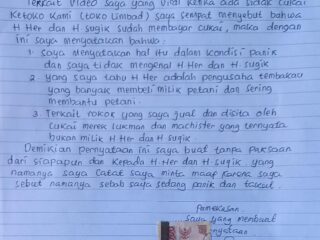 Terkait Video saya yang viral ketika ada sidak cukai
Ketoko Kami (toko Limbad) saya sempat menyebut bahwa
H Her dan H sugik sudah membayar cukai, maka dengan
ini saya menyatakan bahwa:
1. Saya menyatakan hal itu dalam kondisi panik
dan saya tidak mengenal H Her dan H sugik
2. yang saya tahu H Her adalah pengusaha tembakau
yang banyak membeli milik petani dan sering
membantu petani.
3. Terkait rokok yang saya jual dan disita oleh
cukai merek lukman dan machister yang ternyata
bukan milik H Her dan H sugik
Demikian pernyataan ini saya buat tanpa paksaan
dari siapapun dan kepada H Her dan H sugik yang
namanya saya catat saya minta maaf karena saya
sebut namanya sebab saya sedang panik dan takut.
Pamekasan.
saya yang membuat
nyataan